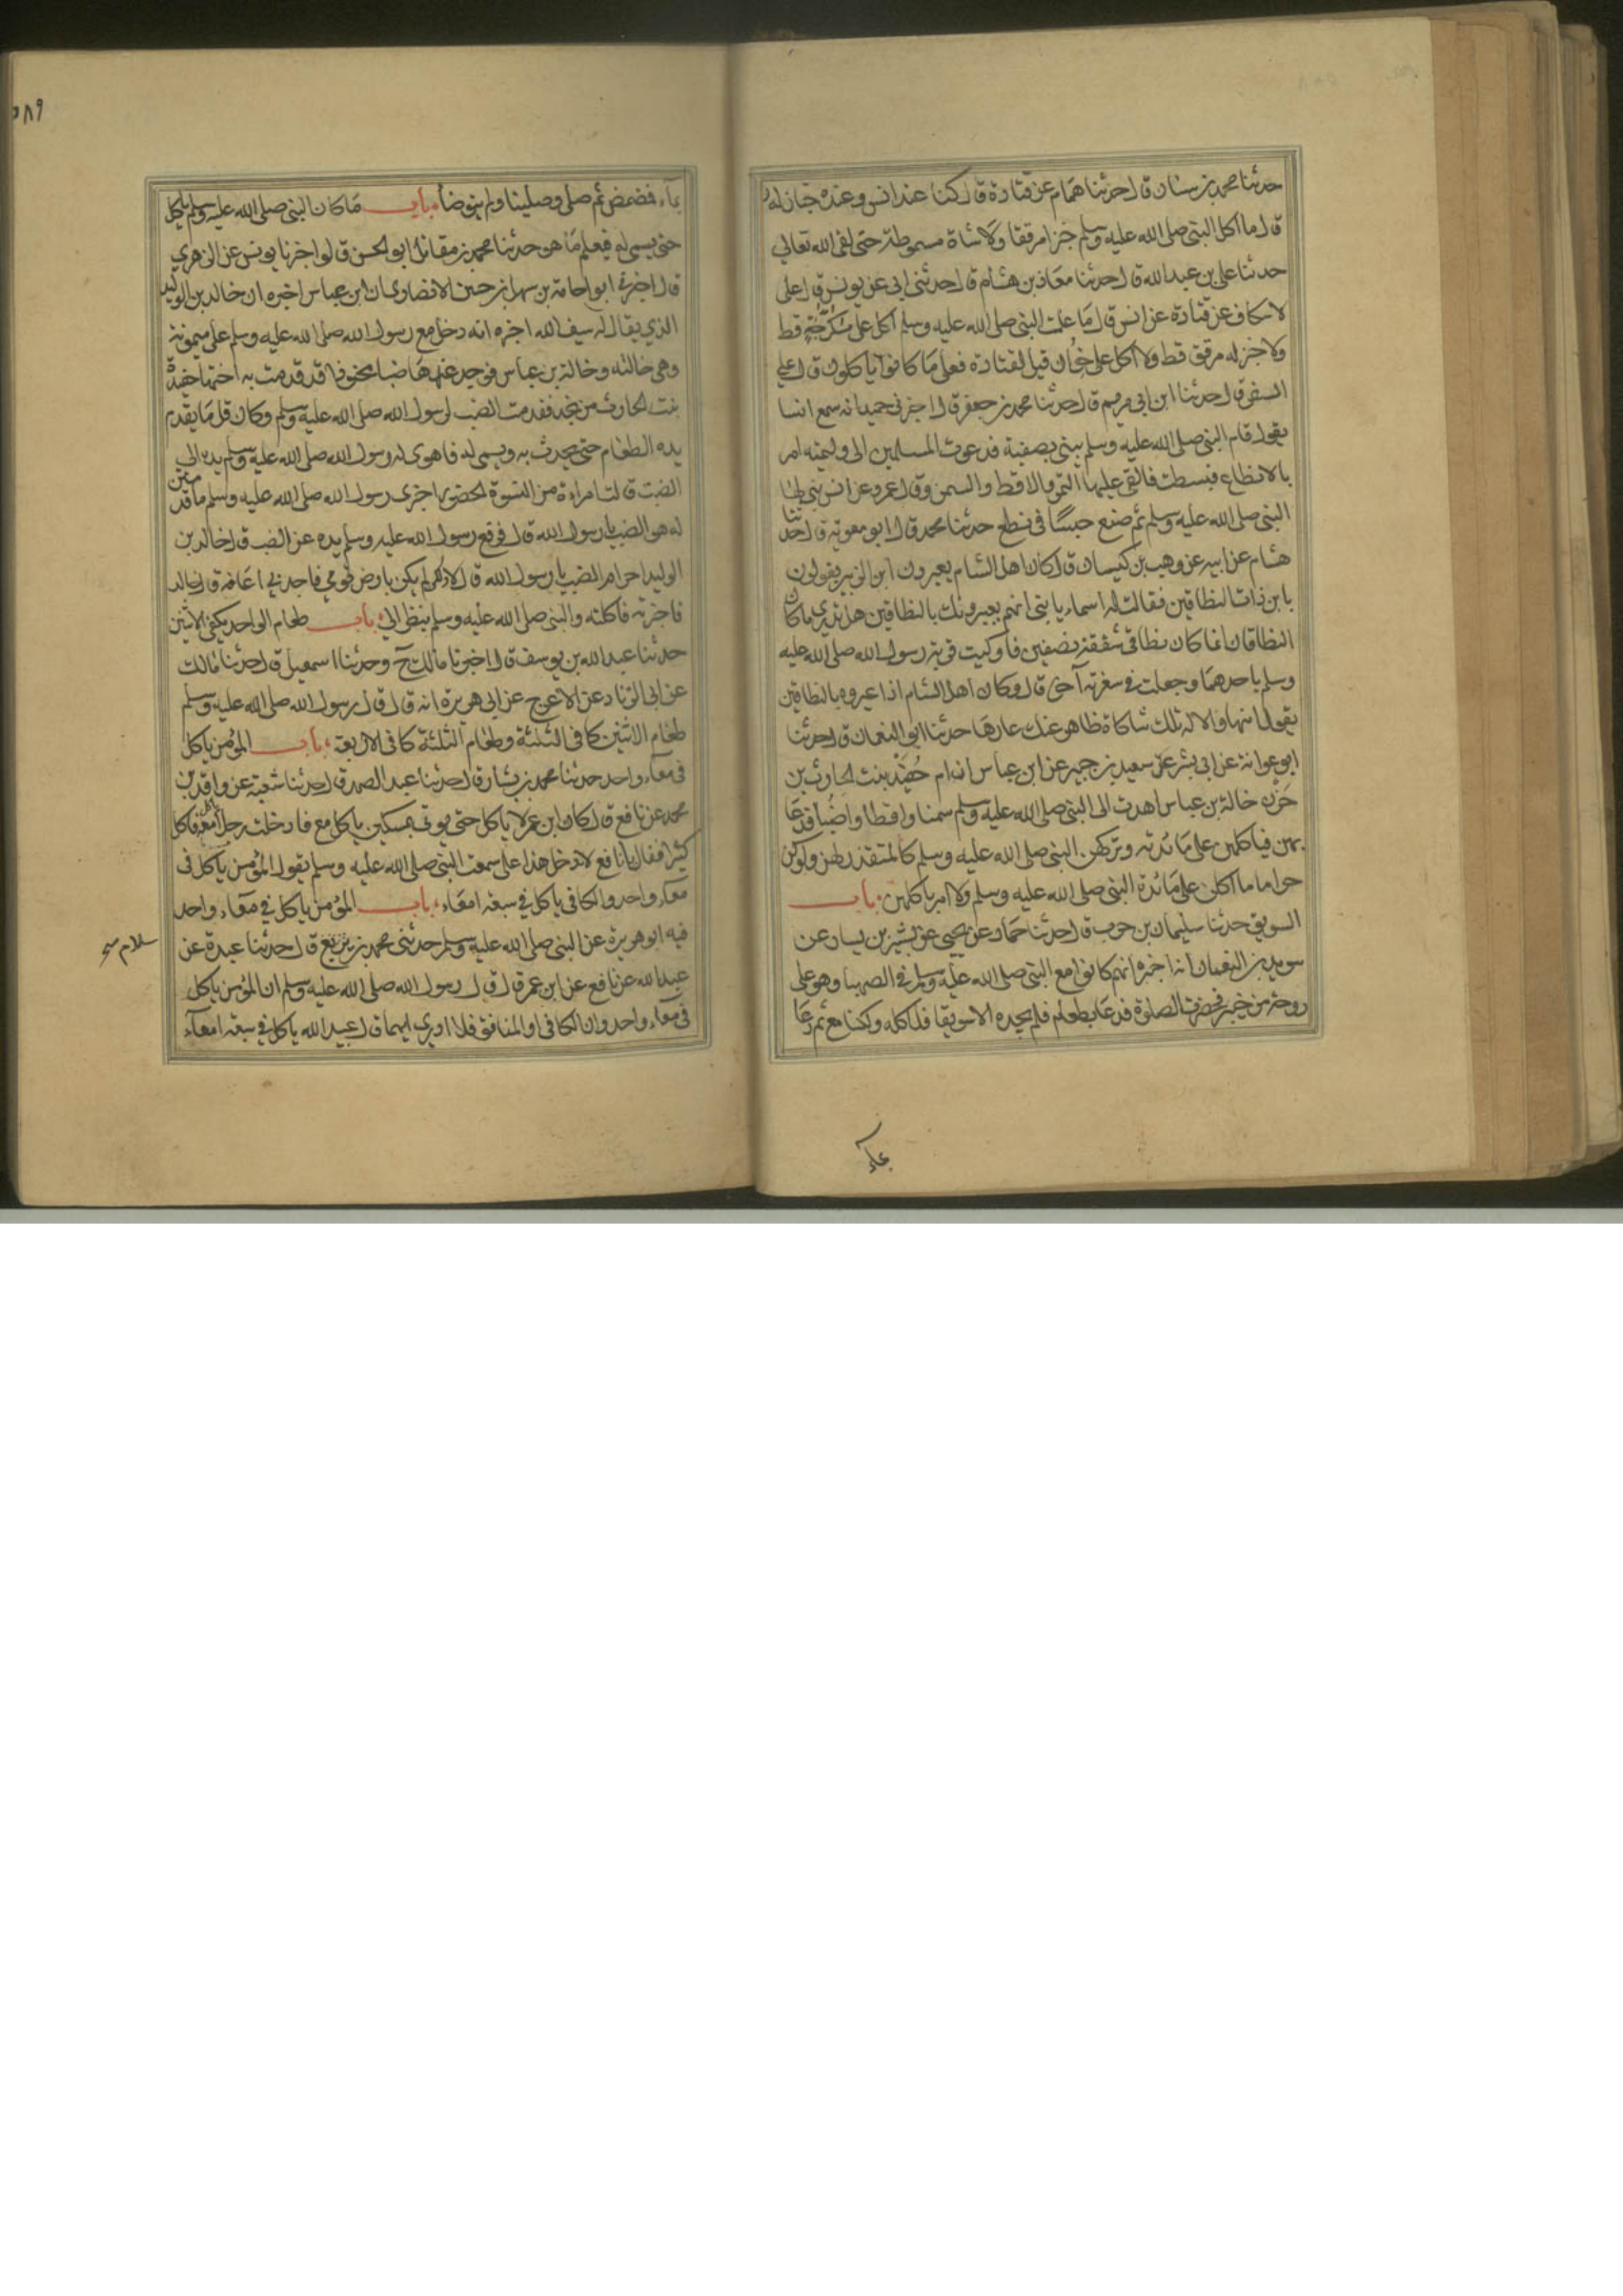 حدثنا محمد بن سنان قال حدثنا همام عن قتادة قال كنا عند انس وعنده خباز له
قال ما اكل النبي صلى الله عليه وسلم خبزا مرققا ولا شاة مسموطة حتى لقى الله تعالى
حدثنا علي بن عبد الله قال حدثنا معاذ بن هشام قال حدثني ابي عن يونس قال على
لاسكاف عن قتادة عن انس قال ما علمت النبي صلى الله عليه وسلم اكل على سكرجة قط
ولا خبز له مرقق قط ولا اكل على خوان قيل لقتادة فعلى ما كانوا ياكلون قال على
السفر قال حدثنا ابن ابي مريم قال حدثنا محمد بن جعفر قال اخبرني حميد انه سمع انسا
يقول قام النبي صلى الله عليه وسلم يبني بصفية فدعوت المسلمين الى وليمته امر
بالانطاع فبسطت فالقى عليها التمر والاقط والسمن وقال عمرو عن انس بنى بها
النبي صلى الله عليه وسلم ثم صنع حيسا في نطع حدثنا محمد قال ابو معوية قال حدثنا
هشام عن ابيه عن وهب بن كيسان قال كان اهل الشام يعيرون ابن الزبير يقولون
يا بن ذات النطاقين فقالت له اسماء يا بني انهم يعيرونك بالنطاقين هل تدري ما كان
النطاقان انما كان نطاقي شققته نصفين فاوكيت قربة رسول الله صلى الله عليه
وسلم باحدهما وجعلت في سفرته آخر قال وكان اهل الشام اذا عيروه بالنطاقين
يقول ايها والاله تلك شكاة ظاهر عنك عارها حدثنا ابو النعمان قال حدثنا
ابو عوانة عن ابي بشر عن سعيد بن جبير عن ابن عباس ان ام حفيد بنت الحارث بن
حزن خالة بن عباس اهدت الى النبي صلى الله عليه وسلم سمنا واقطا واضبا فدعا
بهن فياكلهن على مائدته وتركهن النبي صلى الله عليه وسلم كالمتقذر لهن ولو كن
حراما ما اكلن على مائدة النبي صلى الله عليه وسلم ولا امر باكلهن باب
السويق حدثنا سليمان بن حرب قال حدثنا حماد عن يحيى عن بشير بن يسار عن
سويد بن النعمان انه اخبره انهم كانوا مع النبي صلى الله عليه وسلم في الصهبا وهو على
روحة من خيبر فحضرت الصلوة فدعا بطعام فلم يجده الا سويقا فلاكه ولكنا معه ثم دعا
بماء
٥٨٩
بماء فمضمض ثم صلى وصلينا ولم يتوضأ باب ما كان النبي صلى الله عليه وسلم ياكل
حتى يسمى له فيعلم ما هو حدثنا محمد بن مقاتل ابو الحسن قال اخبرنا يونس عن الزهري
قال اخبرني ابو امامة بن سهل بن حنيف الانصاري ان ابن عباس اخبره ان خالد بن الوليد
الذي يقال له سيف الله اخبره انه دخل مع رسول الله صلى الله عليه وسلم على ميمونة
وهي خالته وخالة بن عباس فوجد عندها ضبا محنوذا قد قدمت به اختها حفيدة
بنت الحارث من نجد فقدمت الضب لرسول الله صلى الله عليه وسلم وكان قل ما يقدم
يده الطعام حتى يحدث به ويسمى له فاهوى له رسول الله صلى الله عليه وسلم يده الى
الضب قالت امراءة من النسوة الحضور اخبرى رسول الله صلى الله عليه وسلم ما قدمتن
له هو الضب يا رسول الله قال فرفع رسول الله عليه وسلم يده عن الضب قال خالد بن
الوليد احرام الضب يا رسول الله قال لا ولكن لم يكن بارض قومي فاجدني اعافه قال خالد
فاجتررته فاكلته والنبي صلى الله عليه وسلم ينظر الي باب طعام الواحد يكفي الاثنين
حدثنا عبد الله بن يوسف قال اخبرنا مالك ح وحدثنا اسمعيل قال حدثنا مالك
عن ابي الزناد عن الاعرج عن ابي هريرة انه قال قال رسول الله صلى الله عليه وسلم
طعام الاثنين كافي الثلثة وطعام الثلثة كافي الاربعة باب المؤمن ياكل
في معاء واحد حدثنا محمد بن بشار قال حدثنا عبد الصمد قال حدثنا شعبة عن واقد بن
محمد عن نافع قال كان ابن عمر لا ياكل حتى يوتى بمسكين ياكل معه فادخلت رجلا ياكل معه فاكل
كثيرا فقال يا نافع لا تدخل هذا على سمعت النبي صلى الله عليه وسلم يقول المؤمن ياكل في
معاء واحد والكافر ياكل في سبعة امعاء باب المؤمن ياكل في معاء واحد
فيه ابو هريرة عن النبي صلى الله عليه وسلم حدثني محمد بن قال حدثنا عبدة عن
سلام
عبيد الله عن نافع عن ابن عمر قال قال رسول الله صلى الله عليه وسلم ان المؤمن ياكل
في معاء واحد وان الكافر او المنافق فلا ادري ايهما قال عبيد الله ياكل في سبعة امعاء